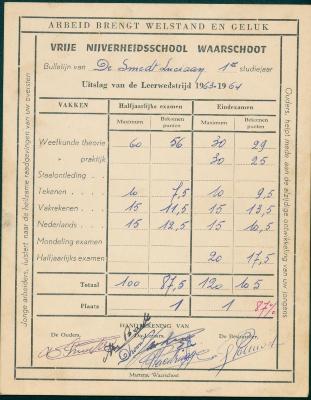 ARBEID BRENGT WELSTAND EN GELUK
VRIJE NIJVERHEIDSSCHOOL WAARSCHOOT
Bulletijn van De Smedt Luciaan 1ste studiejaar
Uitslag van de Leerwedstrijd 1963-1964
VAKKEN Halfjaarlijks examen Eindexamen
Maximum Bekomen punten Maximum Bekomen punten
Weefkunde theorie 60 56 30 29
» praktijk 30 25
Staalontleding
Tekenen 10 7,5 10 9,5
Vakrekenen 15 11,5 15 13,5
Nederlands 15 12,5 15 10,5
Mondeling examen
Halfjaarlijks examen 20 17,5
Totaal 100 87,5 120 105
Plaats 1 1 87%
HANDTEKENING VAN
De Ouders, De Leraars, De Bestuurder,
Martens, Waarschoot
Jonge arbeiders, luistert naar de heilzame raadgevingen van uw oversten
Ouders, helpt mede aan de algijdige ontwikkeling van uw jongens